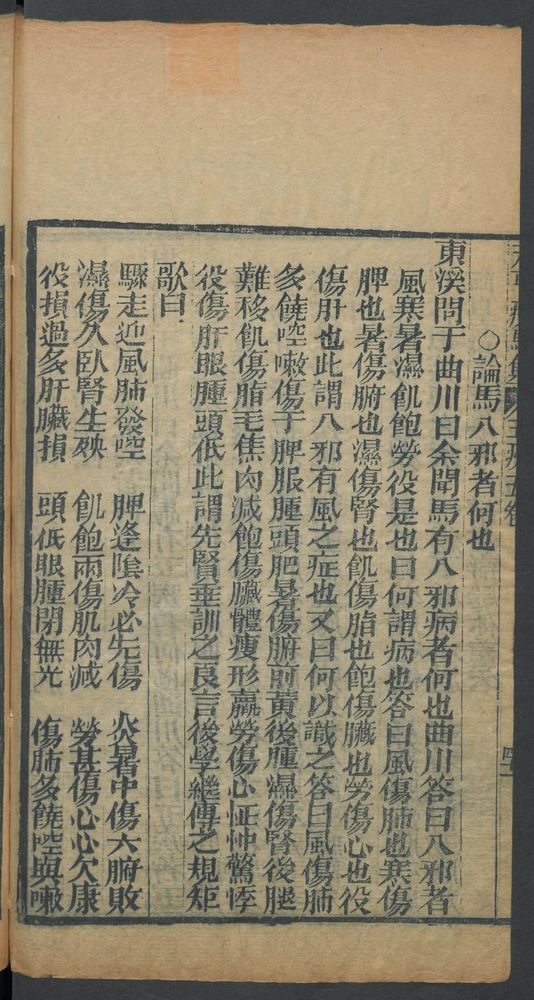 ○論馬八邪者何也
東溪問于曲川曰余聞馬有八邪病者何也曲川答曰八邪者
風寒暑濕飢飽勞役是也曰何謂病也答曰風傷肺也寒傷
脾也暑傷腑也濕傷腎也飢傷脂也飽傷臟也勞傷心也役
傷肝也此謂八邪有風之症也又曰何以識之答曰風傷肺
多饒啌嗽傷于脾脹腫頭肥暑傷腑前黃後腫濕傷腎後腿
難移飢傷脂毛焦肉減飽傷臟體瘦形羸勞傷心怔忡驚悸
役傷肝眼腫頭低此謂先賢垂訓之良言後學繼傳之規矩
歌曰
驟走迎風肺發啌　脾逢陰冷必先傷　炎暑中傷六腑敗
濕傷久臥腎生殃　飢飽兩傷肌肉減　勞甚傷心心欠康
役損過多肝臟損　頭低眼腫閉無光　傷肺多饒啌與嗽